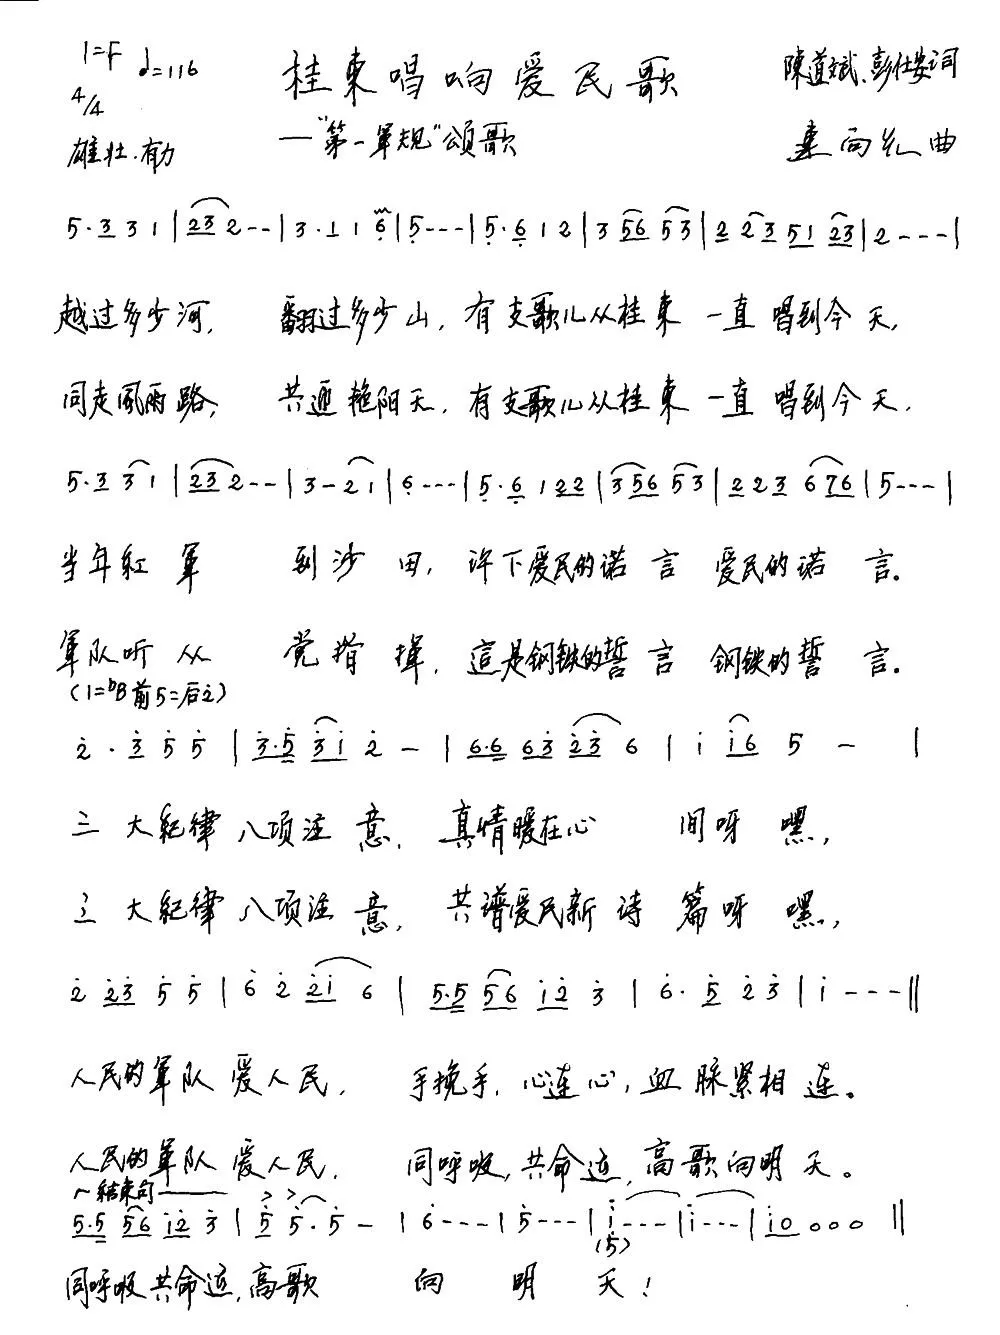 1=F ♩=116 桂東唱响爱民歌 陳道斌、彭仕安词
4/4
雄壮.有力 —"第一軍规"頌歌 曲
5·3 3 1 | 2 3 2 - - | 3·1 1 6 | 5 - - - | 5·6 1 2 | 3 56 53 | 2 23 51 23 | 2 - - - |
越过多少河, 翻过多少山, 有支歌儿从桂東 一直唱到今天,
同走風雨路, 共迎艳阳天, 有支歌儿从桂東 一直唱到今天.
5·3 3 1 | 2 3 2 - - | 3 - 2 1 | 6 - - - | 5·6 1 22 | 3 56 53 | 2 23 6 76 | 5 - - - |
当年紅軍 到沙田, 许下爱民的诺言 爱民的诺言。
軍队听从 党指揮, 這是钢铁的誓言 钢铁的誓言。
(1=bB 前5=后2)
2·3 5 5 | 3·5 3 1 2 - | 6·6 63 23 6 | 1 16 5 - |
三大紀律八项注意, 真情暖在心间呀嘿,
三大紀律八项注意, 共谱爱民新诗篇呀嘿,
2 23 5 5 | 6 2 21 6 | 5·5 56 12 3 | 6·5 2 3 | 1 - - - ||
人民的軍队爱人民, 手挽手,心连心,血脉紧相连。
人民的軍队爱人民, 同呼吸,共命运,高歌向明天。
结束句
5·5 56 12 3 | 5 5·5 - | 6 - - - | 5 - - - | 1 - - - | 1 - - - | 1 0 0 0 0 ||
(5)
同呼吸共命运,高歌 向明天!